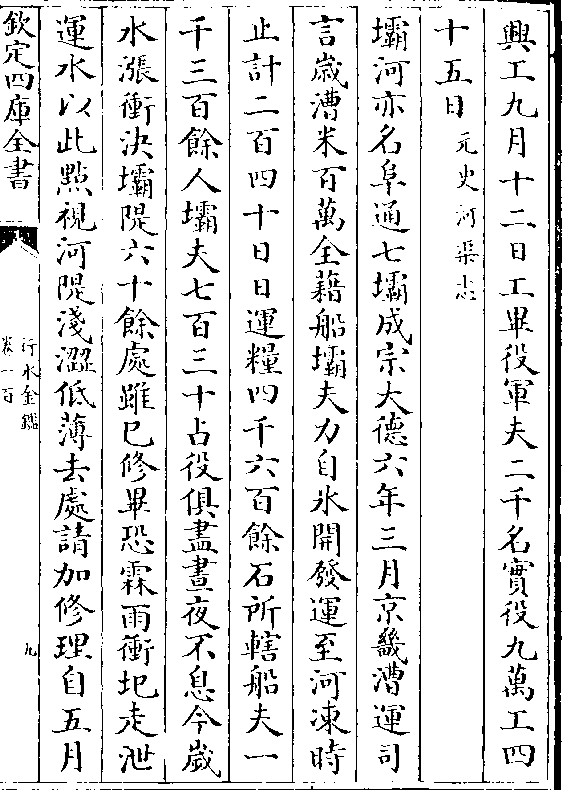 興工九月十二日工畢役軍夫二千名實役九萬工四
十五日元史河渠志
壩河亦名阜通七壩成宗大德六年三月京畿漕運司
言歲漕米百萬全藉船壩夫力自氷開發運至河凍時
止計二百四十日日運糧四千六百餘石所轄船夫一
千三百餘人壩夫七百三十占役俱盡晝夜不息今歲
水漲衝決壩隄六十餘處雖已修畢恐霖雨衝圯走泄
運水以此點視河隄淺澀低薄去處請加修理自五月
欽定四庫全書
行水金鑑
卷一百
九